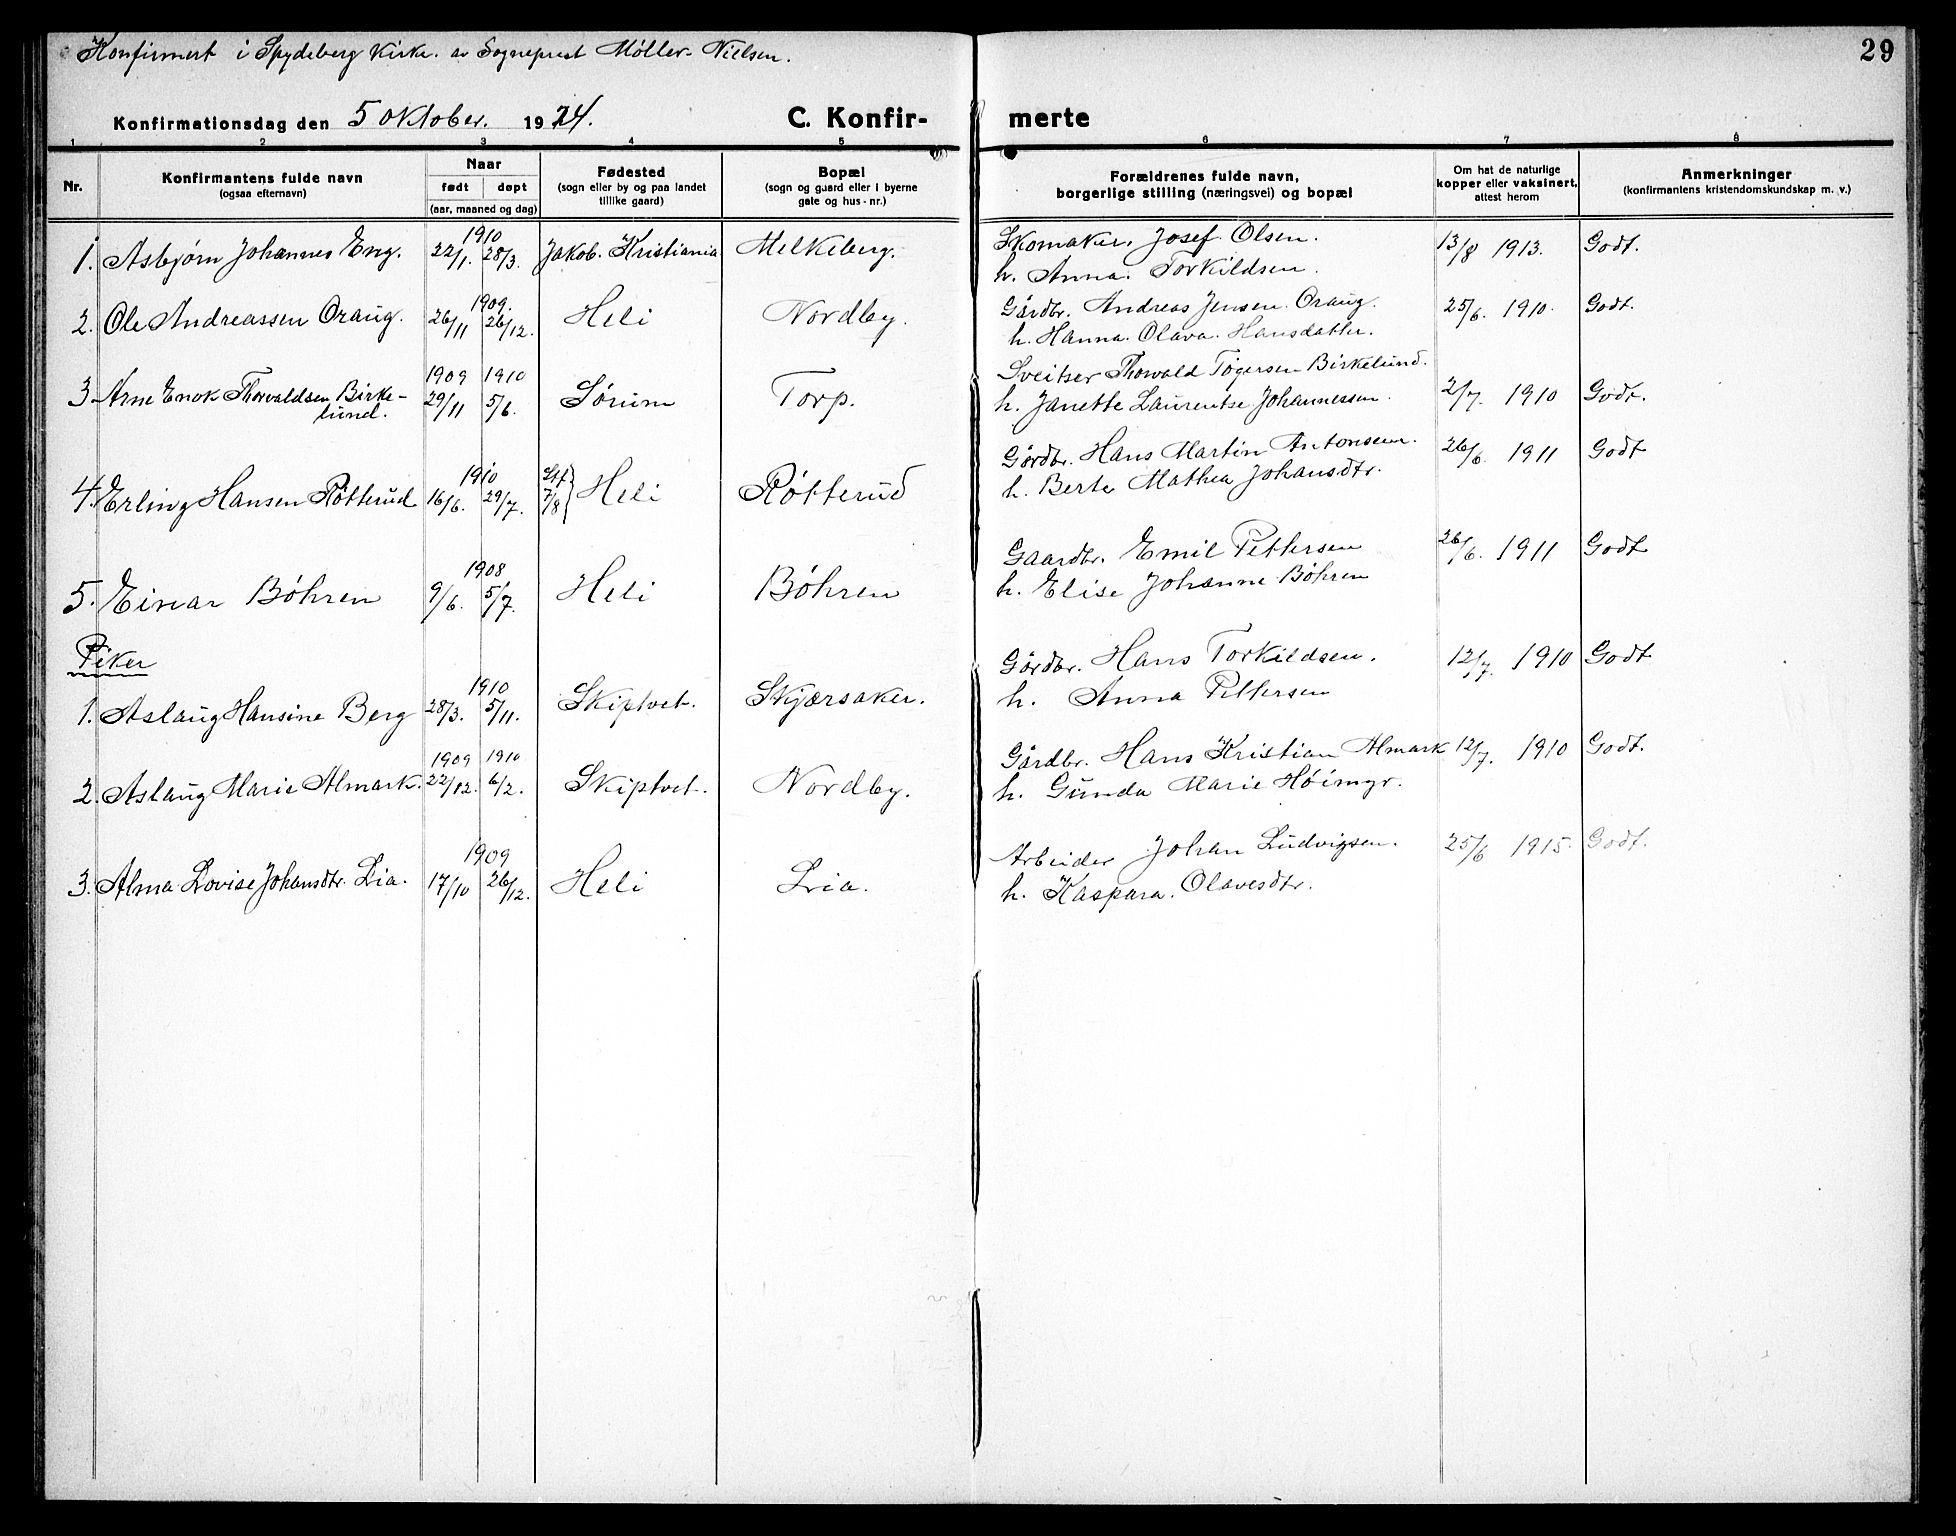 Konfirmert i Spydeberg Kirke. av Sogneprest Møller-Nielsen.
29
Konfirmationsdag den 5 oktober. 1924.
C. Konfirmerte
1 2 3 4 5 6 7 8
Nr.
Konfirmantens fulde navn
(ogsaa efternavn)
Naar
født døpt
(aar, maaned og dag)
Fødested
(sogn eller by og paa landet
tillike gaard)
Bopæl
(sogn og gaard eller i byerne
gate og hus-nr.)
Forældrenes fulde navn,
borgerlige stilling (næringsvei) og bopæl
Om hat de naturlige
kopper eller vaksinert,
attest herom
Anmerkninger
(konfirmantens kristendomskundskap m. v.)
1910
1. Asbjørn Johannes Eng. 22/1. 28/3. Jakob. Kristiania Melkeberg. Skomaker. Josef Olsen. 13/8 1913. Godt.
h. Anna. Torkildsen.
1909.
2. Ole Andreassen Oraug. 26/11 26/12. Heli Nordby. Gårdbr. Andreas Jensen Oraug. 25/6. 1910. Godt.
h. Hanna. Olava. Hansdatter.
1909 1910
3 Arne Enok Thorvaldsen Birke- 29/11 5/6. Sørum Torp. Sveitser Thorvald Tøgersen Birkelund. 2/7. 1910 Godt.
lund. h. Janette Laurentse Johannessen.
1910
4. Erling Hansen Røtterud 16/6. 29/7. Stf 7/8 Heli Røtterud Gårdbr. Hans Martin Antonsen. 26/6 1911 Godt
h. Berte Mathea Johansdtr.
1908
5. Einar Bøhren 9/6. 5/7. Heli Bøhren Gaardbr. Emil Pettersen 26/6. 1911 Godt
h. Elise Johanne Bøhren
Piker
1910
1. Aslaug Hansine Berg 28/3. 5/11. Skiptvet. Skjærsaker. Gårdbr. Hans Torkildsen. 12/7. 1910 Godt
h. Anna Pettersen
1909 1910
2. Aslaug Marie Almark. 22/12. 6/2. Skiptvet. Nordby. Gårdbr. Hans Kristian Almark 12/7. 1910 Godt.
h. Gunda Marie Høimyr.
1909
3. Alma Lovise Johansdtr. Lia. 17/10 26/12. Heli Lia. Arbeider Johan Ludvigsen. 25/6 1915. Godt.
h. Kaspara. Olavesdtr.